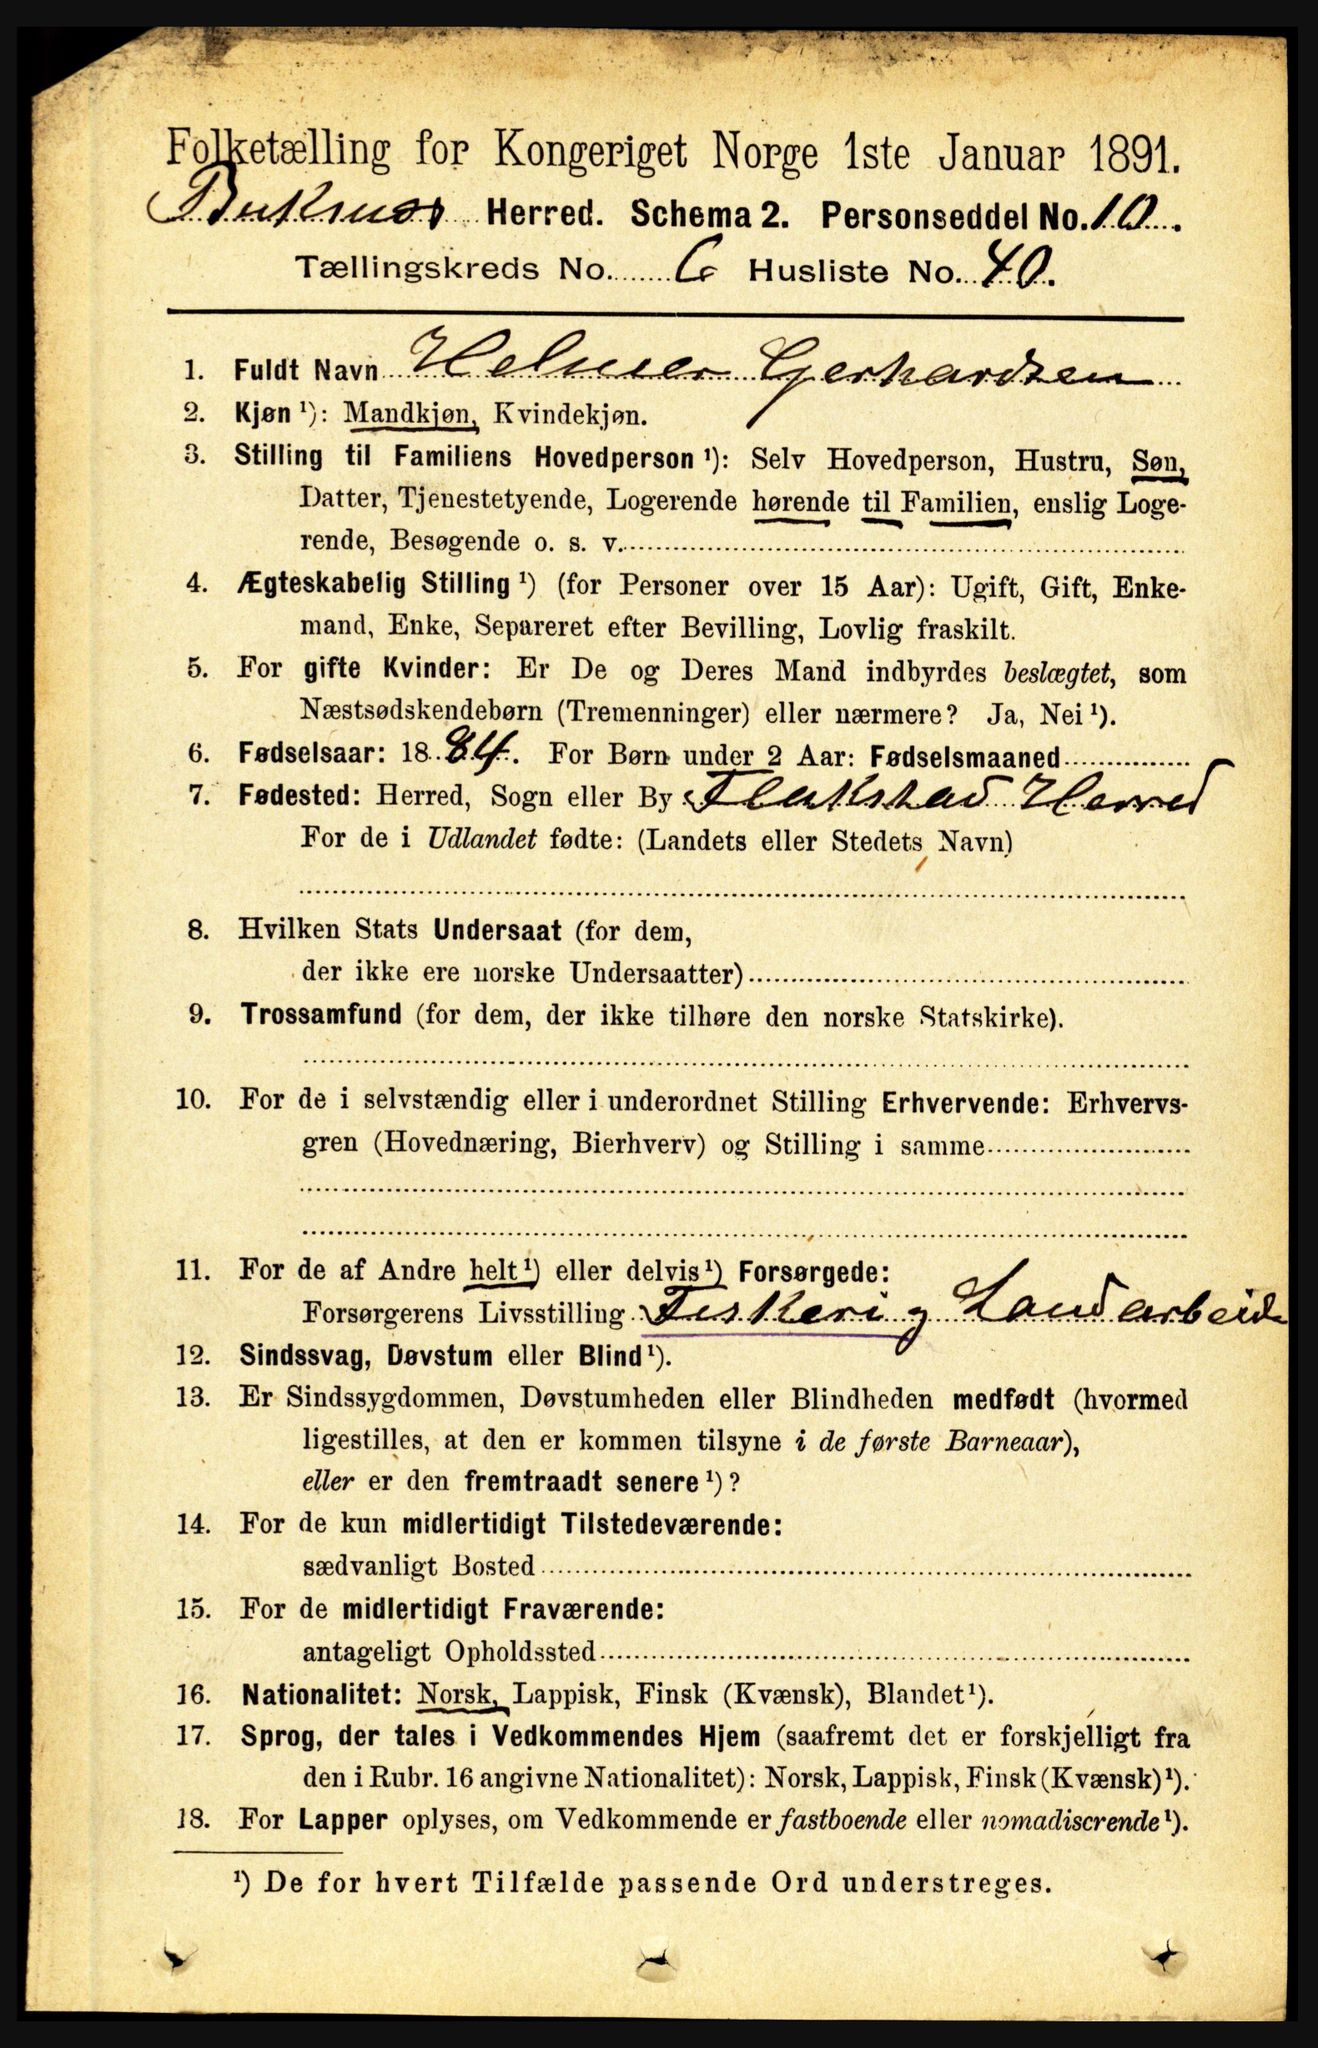 Folketælling for Kongeriget Norge 1ste Januar 1891.
Buksnes Herred. Schema 2. Personseddel No. 10.
Tællingskreds No. 6 Husliste No. 40.
1. Fuldt Navn Helmer Gerhardsen
2. Kjøn ¹): Mandkjøn, Kvindekjøn.
3. Stilling til Familiens Hovedperson ¹): Selv Hovedperson, Hustru, Søn,
Datter, Tjenestetyende, Logerende hørende til Familien, enslig Loge-
rende, Besøgende o. s. v.
4. Ægteskabelig Stilling ¹) (for Personer over 15 Aar): Ugift, Gift, Enke-
mand, Enke, Separeret efter Bevilling, Lovlig fraskilt.
5. For gifte Kvinder: Er De og Deres Mand indbyrdes beslægtet, som
Næstsødskendebørn (Tremenninger) eller nærmere? Ja, Nei ¹).
6. Fødselsaar: 1884. For Børn under 2 Aar: Fødselsmaaned
7. Fødested: Herred, Sogn eller By Flakstad Herred
For de i Udlandet fødte: (Landets eller Stedets Navn)
8. Hvilken Stats Undersaat (for dem,
der ikke ere norske Undersaatter)
9. Trossamfund (for dem, der ikke tilhøre den norske Statskirke).
10. For de i selvstændig eller i underordnet Stilling Erhvervende: Erhvervs-
gren (Hovednæring, Bierhverv) og Stilling i samme
11. For de af Andre helt ¹) eller delvis ¹) Forsørgede:
Forsørgerens Livsstilling Fiskeri og Landarbeide
12. Sindssvag, Døvstum eller Blind ¹).
13. Er Sindssygdommen, Døvstumheden eller Blindheden medfødt (hvormed
ligestilles, at den er kommen tilsyne i de første Barneaar),
eller er den fremtraadt senere ¹)?
14. For de kun midlertidigt Tilstedeværende:
sædvanligt Bosted
15. For de midlertidigt Fraværende:
antageligt Opholdssted
16. Nationalitet: Norsk, Lappisk, Finsk (Kvænsk), Blandet ¹).
17. Sprog, der tales i Vedkommendes Hjem (saafremt det er forskjelligt fra
den i Rubr. 16 angivne Nationalitet): Norsk, Lappisk, Finsk (Kvænsk) ¹).
18. For Lapper oplyses, om Vedkommende er fastboende eller nomadiserende ¹).
¹) De for hvert Tilfælde passende Ord understreges.